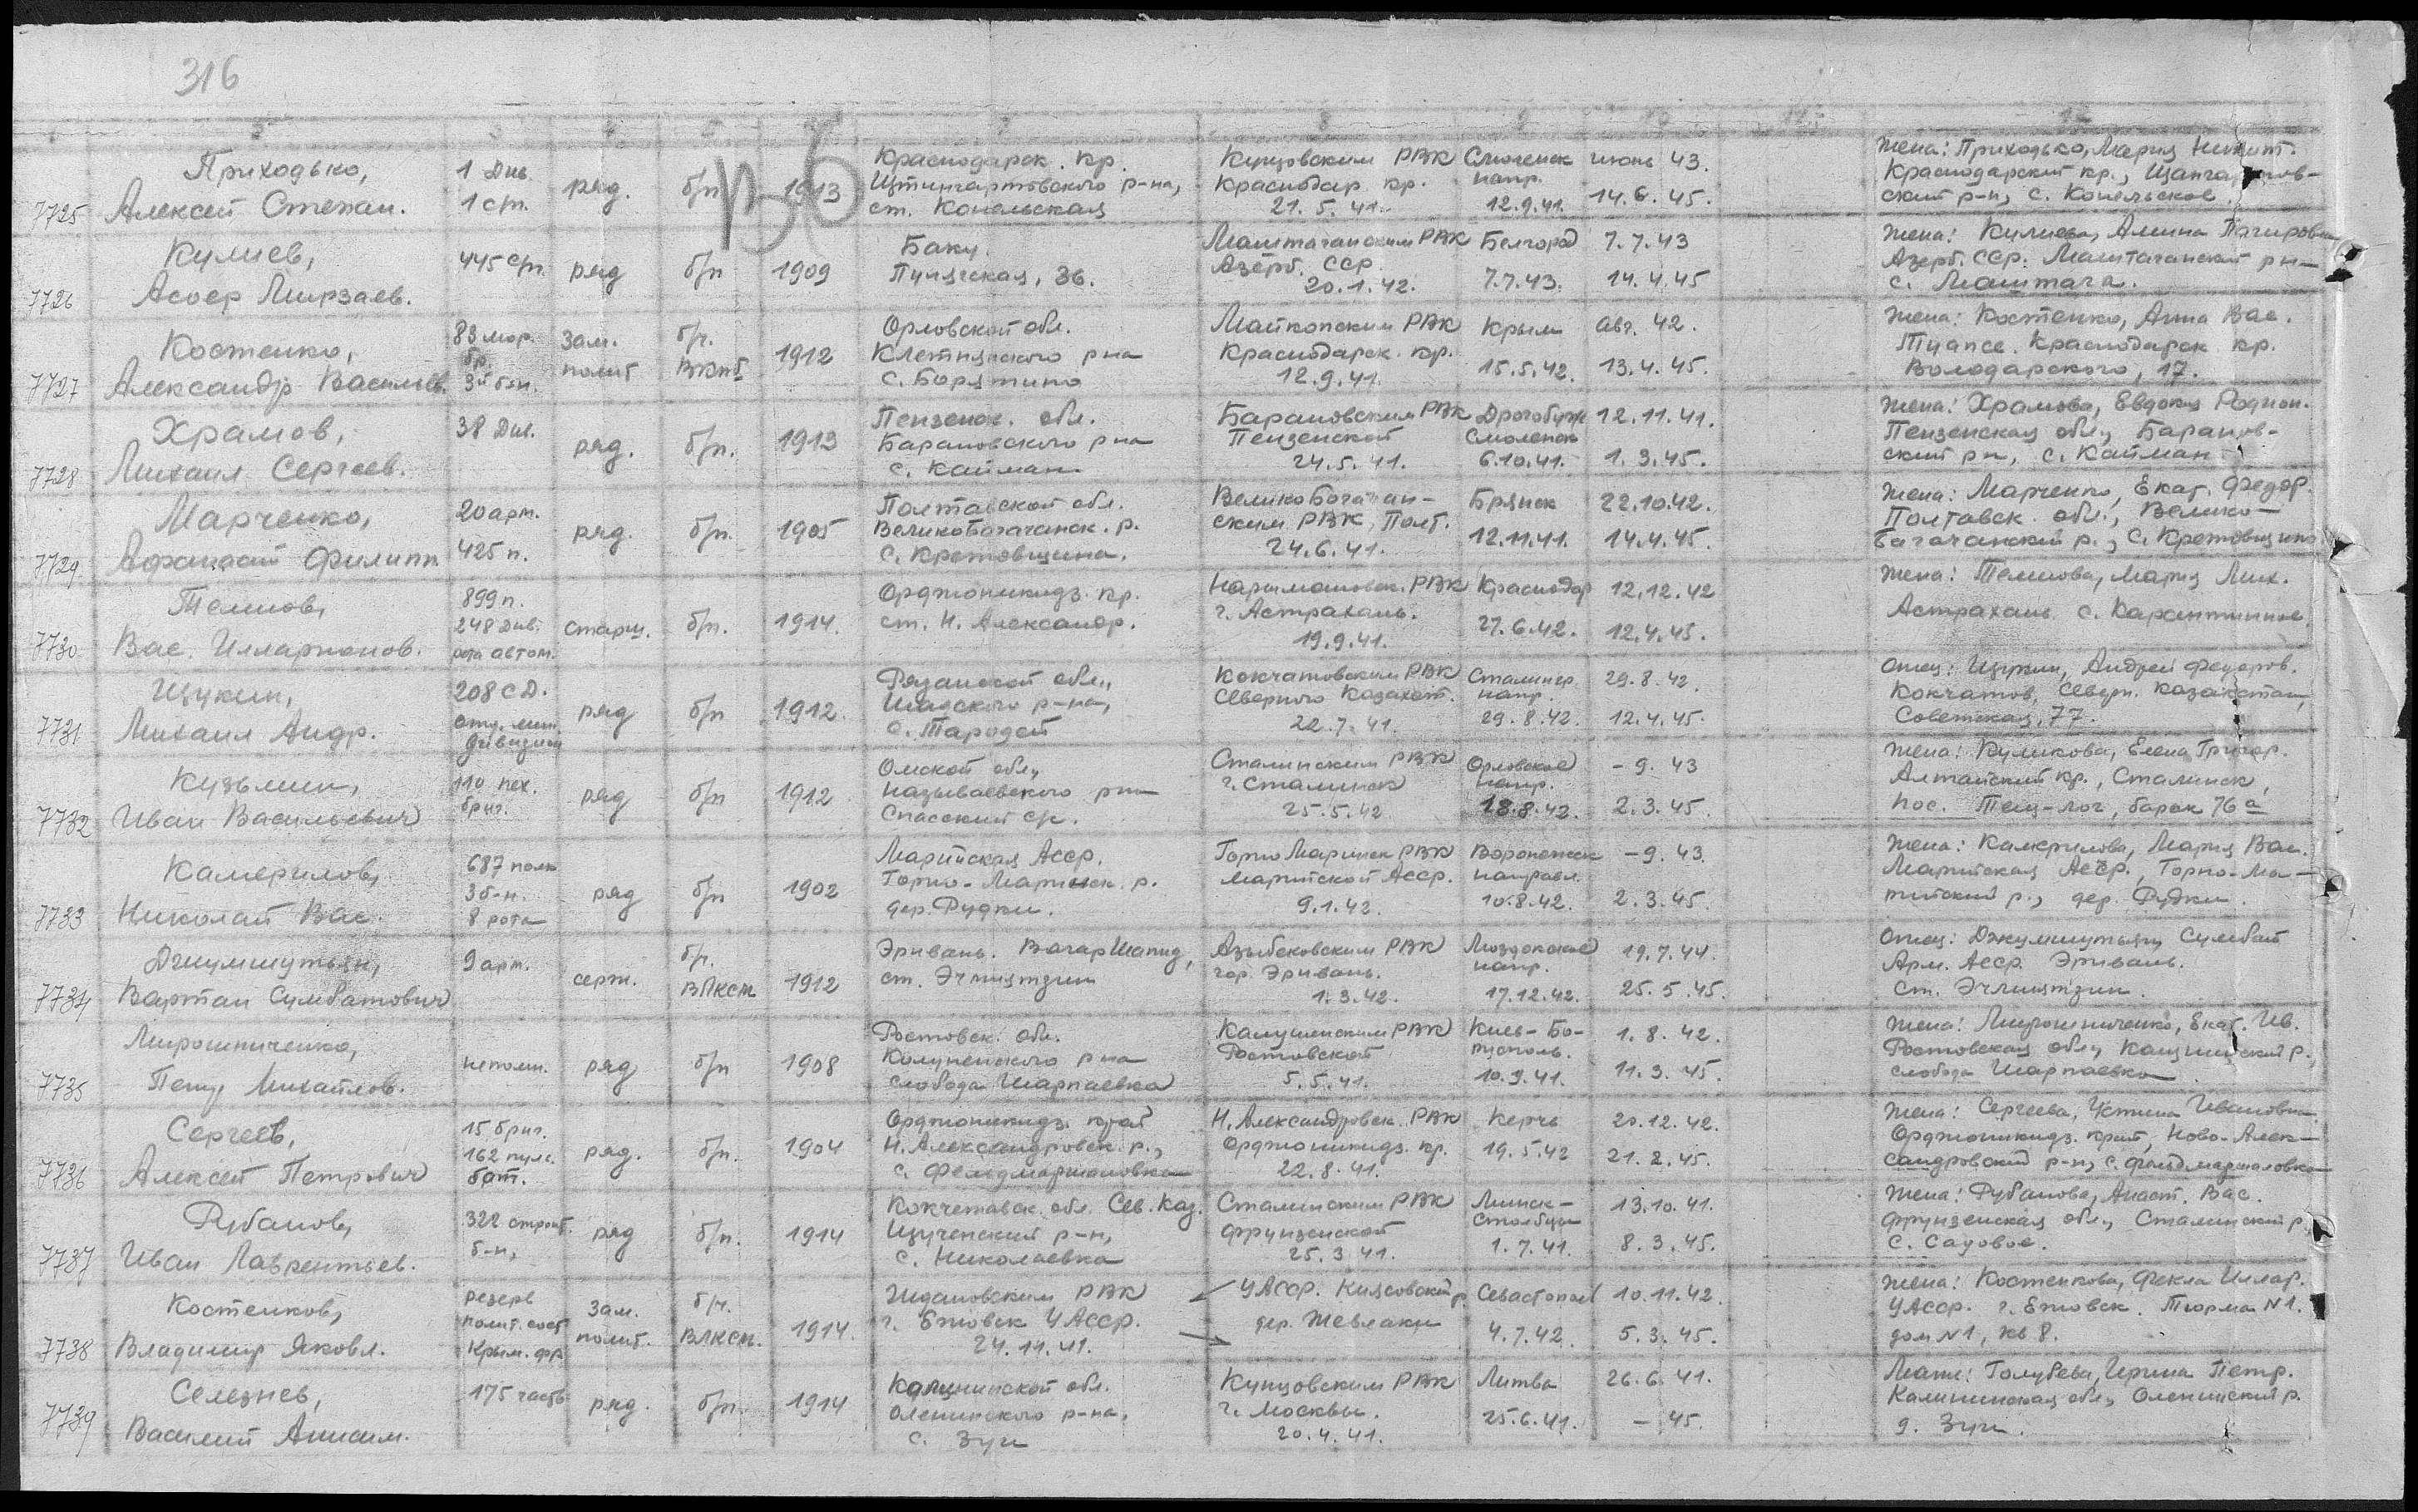 316
2 3 4 5 6 7 8 9 10 11 12
В6
7725 Приходько, Алексей Степан.
1 Див. 1 сп.
ряд.
б/п
1913
Краснодарск. кр.
Штингартовского р-на,
ст. Конельская
Кунцовским РВК
Краснодар кр.
21.5.41.
Смоленск
напр.
12.9.41.
июнь 43.
14.6.45.
Жена: Приходько, Мария Никит.
Краснодарский кр.,
ский р-н, с. Конельское.
7726 Кулиев,
Асоер Мирзаев.
445 сп.
ряд
б/п
1909
Баку.
36.
Маштаганским РВК
Азерб. ССР.
20.1.42.
Белгород
7.7.43.
7.7.43
14.4.45
Жена: Кулиева, Амина
Азерб. ССР. Маштаганский рн
с. Маштага.
7727 Костенко,
Александр Васильев.
83 мор.
бр.
3й бн.
Зам.
полит
б/п.
ВКПб
1912
Орловской обл.
Клетнянского рна
с. Борятино
Майкопским РВК
Краснодарск. кр.
12.9.41.
Крым
15.5.42.
Авг. 42.
13.4.45.
Жена: Костенко, Анна Вас.
Туапсе. Краснодарск. кр.
Володарского, 17.
7728 Храмов,
Михаил Сергеев.
38 Див.
ряд.
б/п.
1913
Пензенск. обл.
Барановского рна
с. Кайман
Барановским РВК
Пензенской
24.5.41.
Дрогобуж
Смоленск
6.10.41.
12.11.41.
1.3.45.
Жена: Храмова, Евдокия Родион.
Пензенская обл., Баранов-
ский рн, с. Кайман
7729 Марченко,
Афанасий Филипп.
20 арт.
425 п.
ряд.
б/п.
1905
Полтавской обл.
ВеликоБагачанск. р.
с. Кротовщина.
ВеликоБагачан-
ским РВК, Полт.
24.6.41.
Брянск
12.11.41.
22.10.42.
14.4.45.
Жена: Марченко, Екат. Федор.
Полтавск. обл., Велико-
Багачанский р., с. Кротовщино
7730 Темнов,
Вас. Илларионов.
899 п.
248 див.
рота автом.
старш.
б/п.
1914.
Орджоникидз. кр.
ст. Н. Александр.
Наримановск. РВК
г. Астрахань.
19.9.41.
Краснодар
27.6.42.
12.12.42
12.4.45.
Жена: Темнова, Мария Мих.
Астрахань. с. Карантинное.
7731 Щукин,
Михаил Андр.
208 СД.
отд. мин.
дивизион
ряд
б/п
1912.
Рязанской обл.,
Шацкого р-на,
с. Тародей
Кокчатовским РВК
Северного Казахст.
22.7.41.
Сталингр.
напр.
29.8.42.
29.8.42.
12.4.45.
Отец: Щукин, Андрей Федоров.
Кокчатов, Северн. Казахстан,
Советская, 77.
7732 Кузьмин,
Иван Васильевич
110 пех.
бриг.
ряд
б/п
1912.
Омской обл.,
Называевского рна
Спасский с/с.
Сталинским РВК
г. Сталинск
25.5.42
Орловское
напр.
18.8.42.
- 9. 43
2.3.45.
Жена: Куликова, Елена Григор.
Алтайский кр., Сталинск,
пос. Тещ-лог, барак 76а
7733 Камерилов,
Николай Вас.
687 полк
3 б-н.
8 рота
ряд
б/п
1902
Марийская Асср.
Горно-Марийск. р.
дер. Рудки.
Горно Марийск РВК
Марийской Асср.
9.1.42.
Воронежск
направл.
10.8.42.
- 9. 43.
2.3.45.
Жена: Камерилова, Мария Вас.
Марийская Асср., Горно-Ма-
рийский р., дер. Рудки.
7734 Джумшутьян,
Вартан Сумбатович
9 арт.
серж.
б/п.
ВЛКСМ
1912
Эривань. ВагарШапид,
ст. Эчмиятзин
Азыбековским РВК
гор. Эривань.
1.3.42.
Моздокское
напр.
17.12.42.
19.7.44.
25.5.45.
Отец: Джумшутьян, Сумбат
Арм. Асср. Эривань.
ст. Эчмиятзин.
7735 Мирошниченко,
Петр Михайлов.
непомн.
ряд
б/п
1908
Ростовск. обл.
рна
слобода Шарпаевка
РВК
Ростовской
5.5.41.
Киев-Бо-
русполь.
10.9.41.
1.8.42.
11.3.45.
Жена: Мирошниченко, Екат. Ив.
Ростовская обл.,
слобода Шарпаевка.
7736 Сергеев,
Алексей Петрович
15 бриг.
162 пулс.
бат.
ряд.
б/п.
1904
Орджоникидз. край
Н. Александровск. р.,
с. Фельдмаршаловка
Н. Александровск. РВК
Орджоникидз. кр.
22.8.41.
Керчь
19.5.42
20.12.42.
21.2.45.
Жена: Сергеева, Устинa Ивановна
Орджоникидз. край, Ново-Алек-
сандровский р-н, с. Фельдмаршаловка
7737 Рубанов,
Иван Лаврентьев.
322 строит.
б-н,
ряд
б/п.
1914
Кокчетавск. обл. Сев. Каз.
Щученский р-н,
с. Николаевка
Сталинским РВК
Фрунзенской
25.3.41.
Минск-
Столбцы
1.7.41.
13.10.41.
8.3.45.
Жена: Рубанова, Анаст. Вас.
Фрунзенская обл., Сталинский р.
с. Садовое.
7738 Костенков,
Владимир Яковл.
резерв
полит. сост
Крым. фр.
Зам.
полит.
б/п.
ВЛКСМ.
1914.
Ждановским РВК
г. Ежовск УАсср.
24.11.41.
УАсср. Киясовский р
дер. Жевлаки
Севастополь
4.7.42.
10.11.42.
5.3.45.
Жена: Костенкова, Фекла Иллар.
УАсср. г. Ежовск. Тюрма №1.
дом №1, кв 8.
7739 Селезнев,
Василий Анисим.
175 часть
ряд.
б/п.
1914
Калининской обл.
Оленинского р-на,
с. Зуи
Кунцовским РВК
г. Москвы.
20.4.41.
Литва
25.6.41.
26.6.41.
- 45.
Мать: Голубева, Ирина Петр.
Калининская обл., Оленинский р.
д. Зуи.